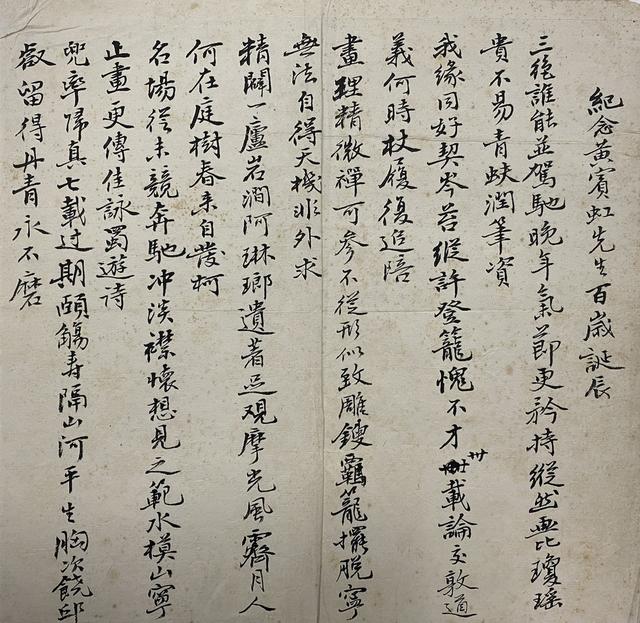 紀念黃賓虹先生百歲誕辰
三絕誰能並駕馳晚年氣節更矜持縱然無比瓊瑤
貴不易青蚨潤筆資
我緣同好契岑苔縱許登龍愧不才卅載論交敦道
義何時杖履復追陪
畫理精微禪可參不從形似致雕鎪羈籠擺脫寧
無法自得天機非外求
精闢一廬岩澗阿琳瑯遺著足观摩光風霽月人
何在庭樹春来自發柯
名場從未競奔馳冲淡襟懷想見之範水模山寧
止畫更傳佳詠蜀遊诗
兜率歸真七載过期頤觴寿隔山河平生胸次饒邱
壑留得丹青永不磨